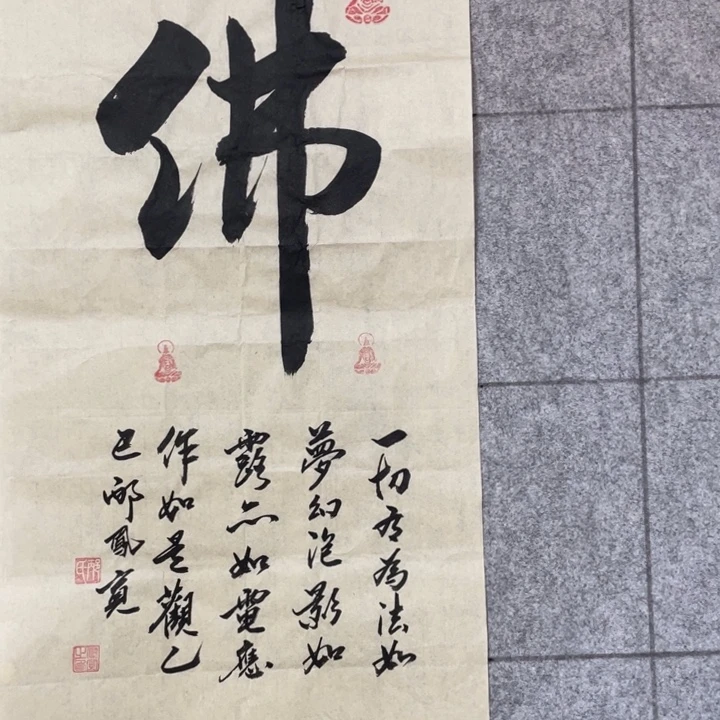 佛
一切有為法如
夢幻泡影如
露亦如電應
作如是觀乙
巳邴鳳寬